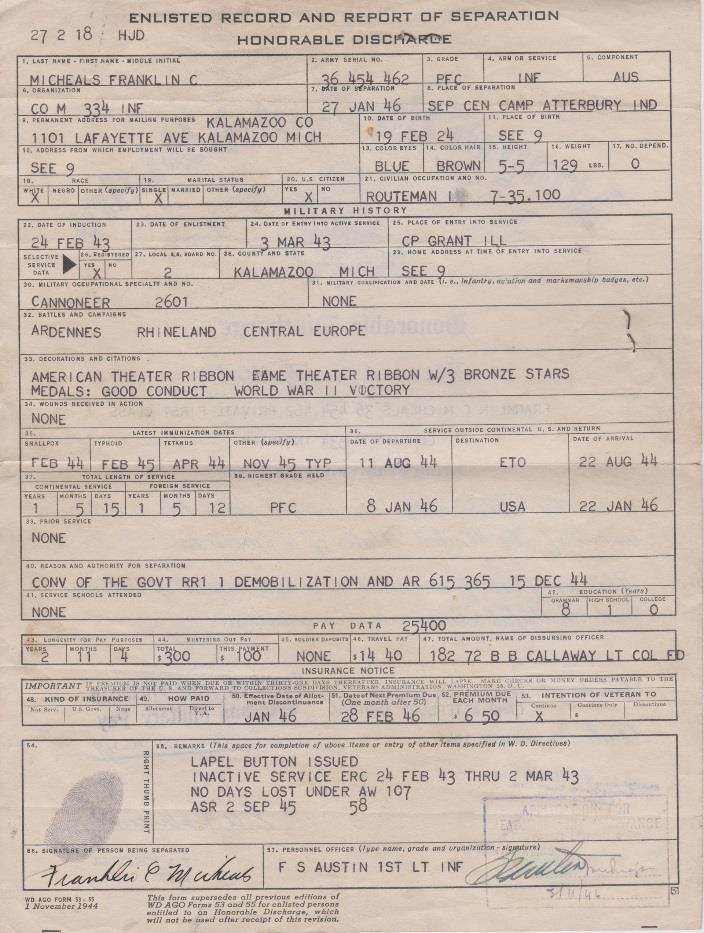 ENLISTED RECORD AND REPORT OF SEPARATION
27 2 18 HJD
HONORABLE DISCHARGE
1. LAST NAME - FIRST NAME - MIDDLE INITIAL 2. ARMY SERIAL NO. 3. GRADE 4. ARM OR SERVICE 5. COMPONENT
MICHEALS FRANKLIN C 36 454 462 PFC INF AUS
6. ORGANIZATION 7. DATE OF SEPARATION 8. PLACE OF SEPARATION
CO M 334 INF 27 JAN 46 SEP CEN CAMP ATTERBURY IND
9. PERMANENT ADDRESS FOR MAILING PURPOSES KALAMAZOO CO 10. DATE OF BIRTH 11. PLACE OF BIRTH
1101 LAFAYETTE AVE KALAMAZOO MICH 19 FEB 24 SEE 9
12. ADDRESS FROM WHICH EMPLOYMENT WILL BE SOUGHT 13. COLOR EYES 14. COLOR HAIR 15. HEIGHT 16. WEIGHT 17. NO. DEPEND.
SEE 9 BLUE BROWN 5-5 129 LBS. 0
18. RACE 19. MARITAL STATUS 20. U.S. CITIZEN 21. CIVILIAN OCCUPATION AND NO.
WHITE NEGRO OTHER (specify) SINGLE MARRIED OTHER (specify) YES NO
X X X ROUTEMAN 7-35.100
MILITARY HISTORY
22. DATE OF INDUCTION 23. DATE OF ENLISTMENT 24. DATE OF ENTRY INTO ACTIVE SERVICE 25. PLACE OF ENTRY INTO SERVICE
24 FEB 43 3 MAR 43 CP GRANT ILL
SELECTIVE SERVICE DATA 26. REGISTERED YES NO 27. LOCAL S.S. BOARD NO. 28. COUNTY AND STATE 29. HOME ADDRESS AT TIME OF ENTRY INTO SERVICE
X 2 KALAMAZOO MICH SEE 9
30. MILITARY OCCUPATIONAL SPECIALTY AND NO. 31. MILITARY QUALIFICATION AND DATE (i.e., infantry, aviation and marksmanship badges, etc.)
CANNONEER 2601 NONE
32. BATTLES AND CAMPAIGNS
ARDENNES RHINELAND CENTRAL EUROPE
33. DECORATIONS AND CITATIONS
AMERICAN THEATER RIBBON EAME THEATER RIBBON W/3 BRONZE STARS
MEDALS: GOOD CONDUCT WORLD WAR II VICTORY
34. WOUNDS RECEIVED IN ACTION
NONE
35. LATEST IMMUNIZATION DATES 36. SERVICE OUTSIDE CONTINENTAL U. S. AND RETURN
SMALLPOX TYPHOID TETANUS OTHER (specify) DATE OF DEPARTURE DESTINATION DATE OF ARRIVAL
FEB 44 FEB 45 APR 44 NOV 45 TYP 11 AUG 44 ETO 22 AUG 44
37. TOTAL LENGTH OF SERVICE 38. HIGHEST GRADE HELD
CONTINENTAL SERVICE FOREIGN SERVICE
YEARS MONTHS DAYS YEARS MONTHS DAYS
1 5 15 1 5 12 PFC 8 JAN 46 USA 22 JAN 46
39. PRIOR SERVICE
NONE
40. REASON AND AUTHORITY FOR SEPARATION
CONV OF THE GOVT RR1 1 DEMOBILIZATION AND AR 615 365 15 DEC 44
41. SERVICE SCHOOLS ATTENDED 42. EDUCATION (Years)
GRAMMAR HIGH SCHOOL COLLEGE
NONE 8 1 0
PAY DATA 25400
43. LONGEVITY FOR PAY PURPOSES 44. MUSTERING OUT PAY 45. SOLDIER DEPOSITS 46. TRAVEL PAY 47. TOTAL AMOUNT, NAME OF DISBURSING OFFICER
YEARS MONTHS DAYS TOTAL THIS PAYMENT
2 11 4 $ 300 $ 100 NONE $ 14 40 182 72 B B CALLAWAY LT COL FD
INSURANCE NOTICE
IMPORTANT IF PREMIUM IS NOT PAID WHEN DUE OR WITHIN THIRTY-ONE DAYS THEREAFTER, INSURANCE WILL LAPSE. MAKE CHECKS OR MONEY ORDERS PAYABLE TO THE
TREASURER OF THE U. S. AND FORWARD TO COLLECTIONS SUBDIVISION, VETERANS ADMINISTRATION, WASHINGTON 25, D. C.
48. KIND OF INSURANCE 49. HOW PAID 50. Effective Date of Allotment Discontinuance 51. Date of Next Premium Due (One month after 50) 52. PREMIUM DUE EACH MONTH 53. INTENTION OF VETERAN TO
Nat. Serv. U.S. Govt. None Allotment Direct to V.A. Continue Continue Only Discontinue
JAN 46 28 FEB 46 $ 6 50 X $
54. 55. REMARKS (This space for completion of above items or entry of other items specified in W. D. Directives)
RIGHT THUMB PRINT
LAPEL BUTTON ISSUED
INACTIVE SERVICE ERC 24 FEB 43 THRU 2 MAR 43
NO DAYS LOST UNDER AW 107
ASR 2 SEP 45 58
56. SIGNATURE OF PERSON BEING SEPARATED 57. PERSONNEL OFFICER (Type name, grade and organization - signature)
Franklin C Micheals F S AUSTIN 1ST LT INF
WD AGO FORM 53 - 55
1 November 1944
This form supersedes all previous editions of
WD AGO Forms 53 and 55 for enlisted persons
entitled to an Honorable Discharge, which
will not be used after receipt of this revision.